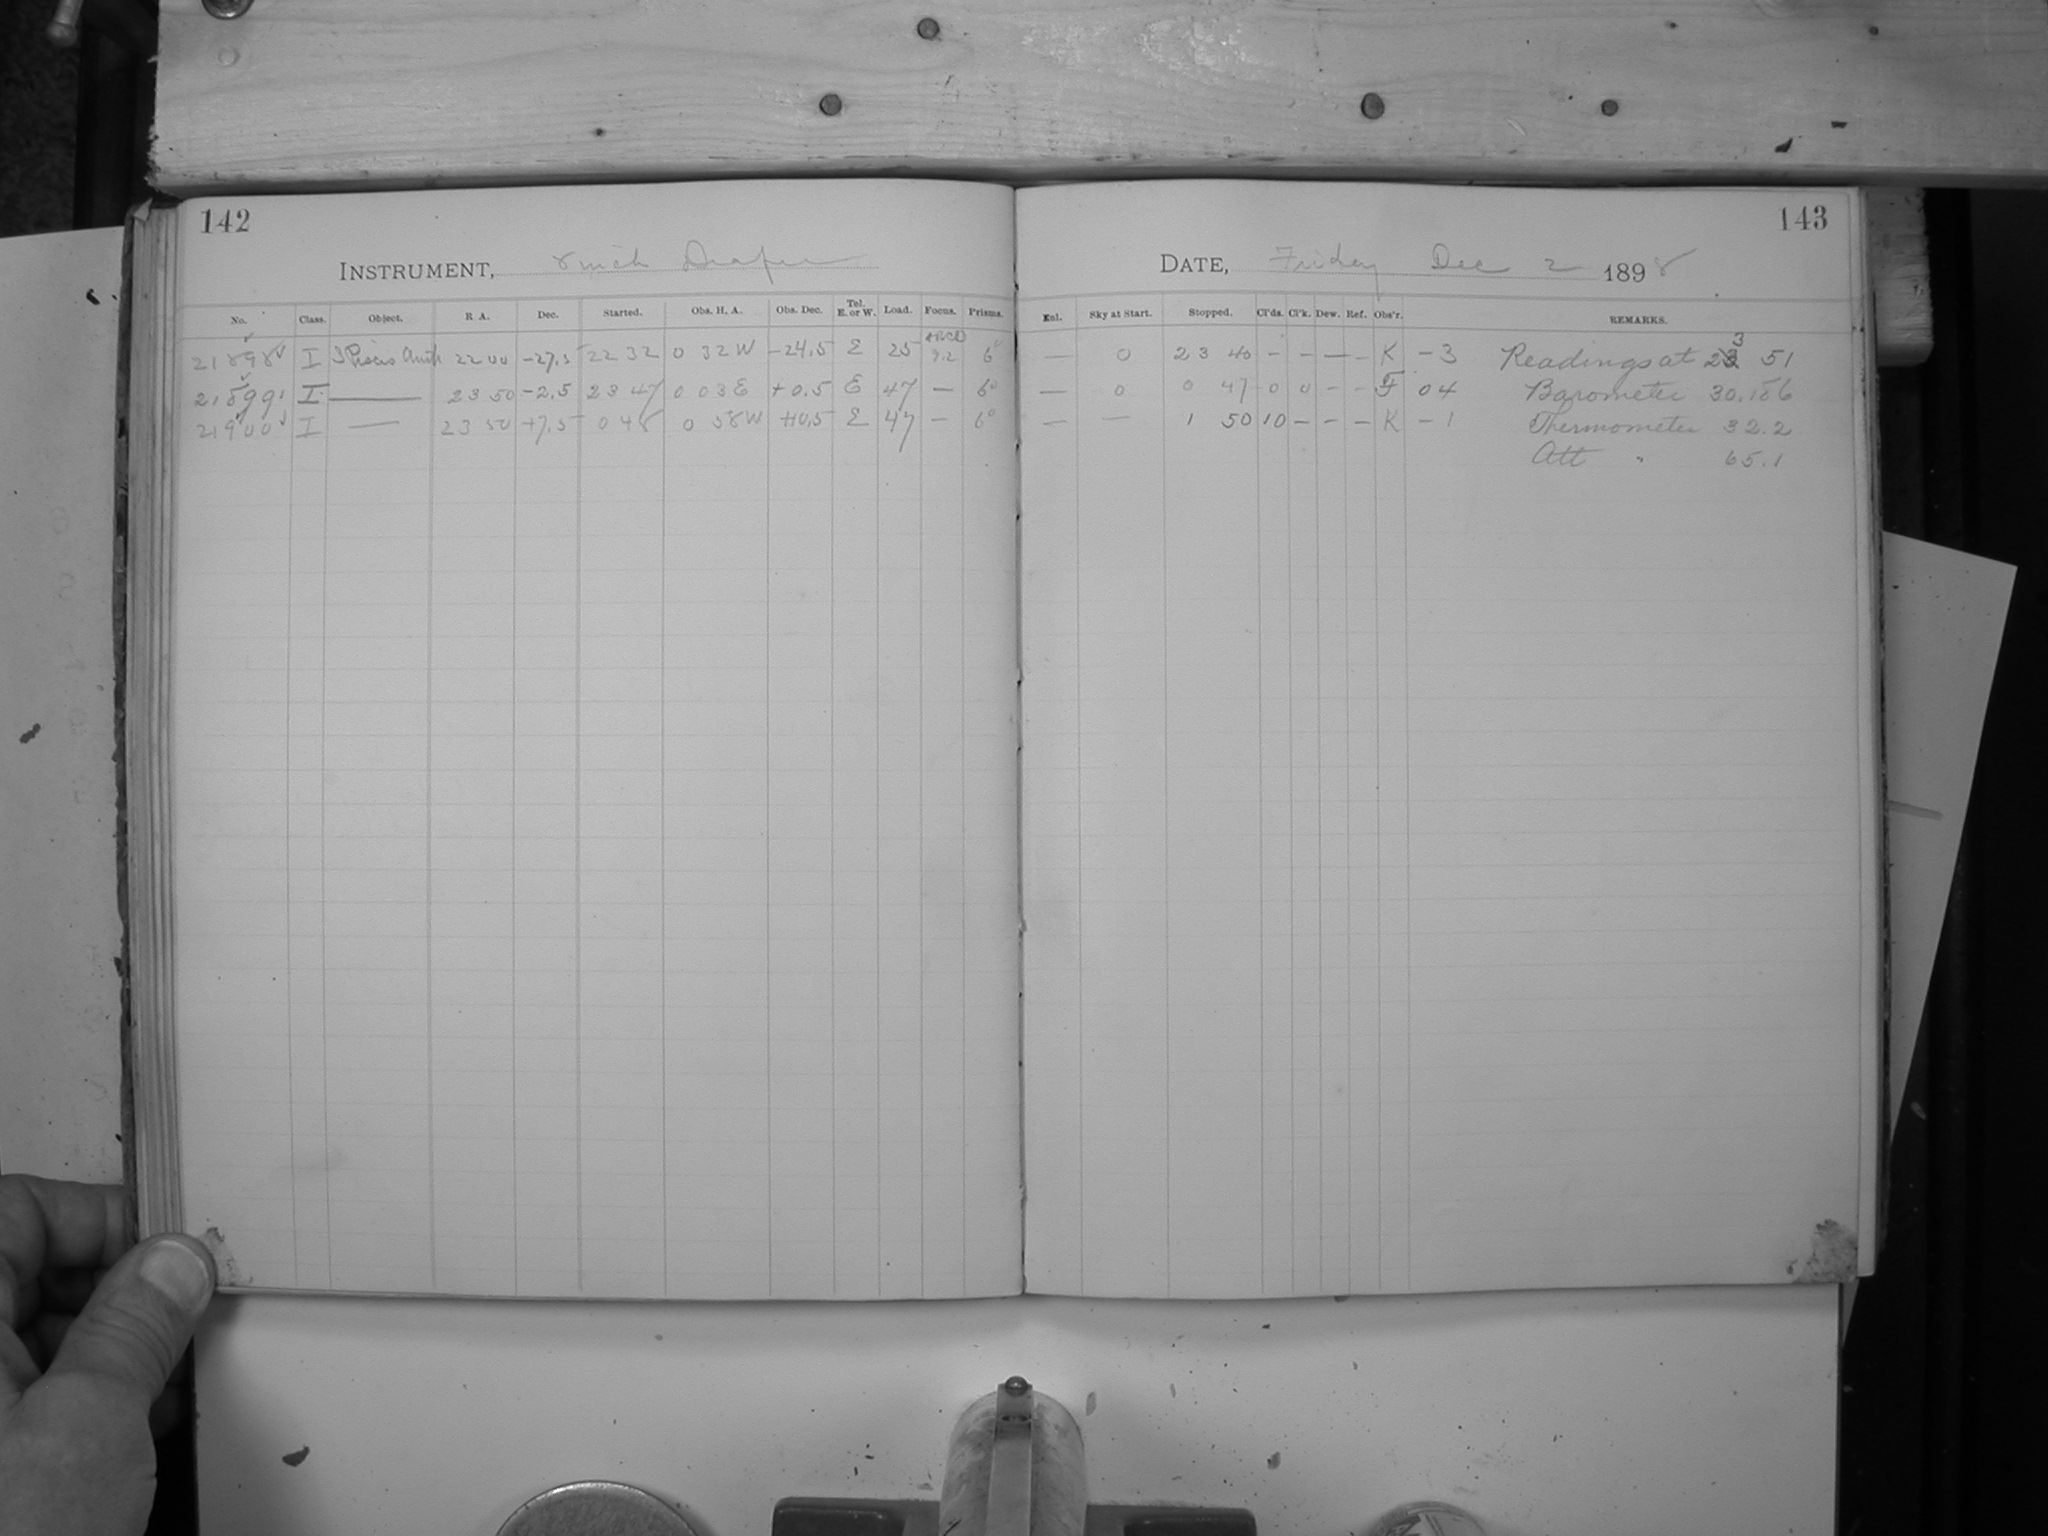 142
INSTRUMENT, 8 inch Draper
No. Class. Object. R A. Dec. Started. Obs. H. A. Obs. Dec. Tel. E. or W. Load. Focus. Prisms.
21898 I 3 Piscis Aus 22 00 -27.5 22 32 0 32 W -24.5 E 25 9.2 6°
21899 I — 23 50 -2.5 23 47 0 03 E +0.5 E 47 — 6°
21900 I — 23 50 +7.5 0 48 0 58 W +10.5 E 47 — 6°
143
DATE, Friday Dec 2 1898
Enl. Sky at Start. Stopped. Cl'ds. Cl'k. Dew. Ref. Obs'r. REMARKS.
— 0 23 40 - - — - K - 3 Readings at 23 51
— 0 0 47 0 0 - - F 04 Barometer 30.186
— — 1 50 10 - - - K - 1 Thermometer 32.2
Att " 65.1